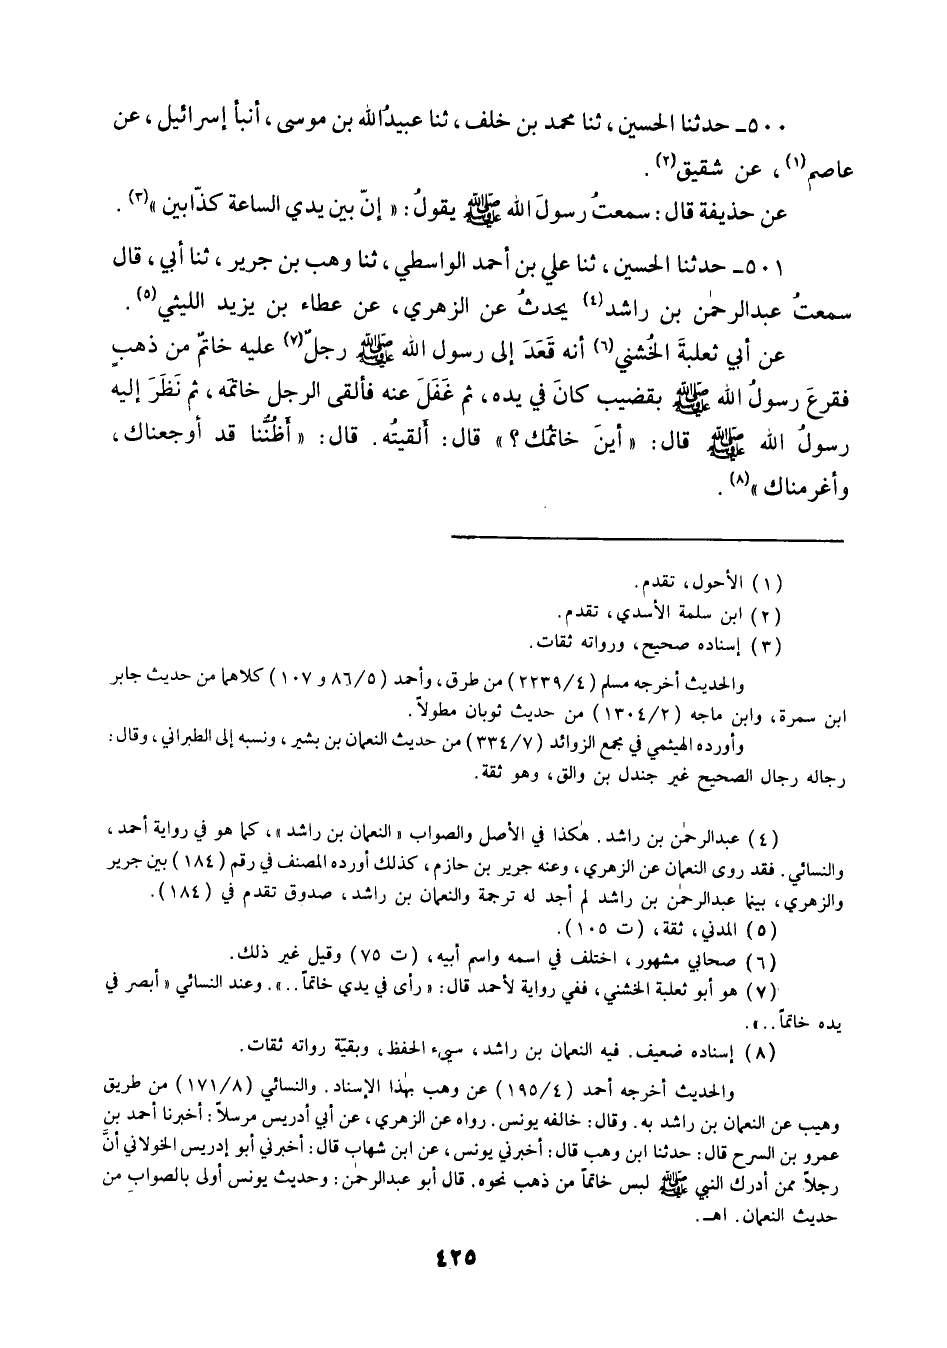 ٥٠٠ـ حدثنا الحسين، ثنا محمد بن خلف، ثنا عبيدُالله بن موسى، أنبأ إسرائيل، عن
عاصم(١)، عن شقيق(٢).
عن حذيفة قال: سمعتُ رسولَ الله ﷺ يقولُ: « إنّ بين يدي الساعة كذّابين »(٣).
٥٠١ـ حدثنا الحسين، ثنا علي بن أحمد الواسطي، ثنا وهب بن جرير، ثنا أبي، قال
سمعتُ عبدالرحمٰن بن راشد(٤) يحدثُ عن الزهري، عن عطاء بن يزيد الليثي(٥).
عن أبي ثعلبةَ الخُشني(٦) أنه قَعَدَ إلى رسول الله ﷺ رجلٌ(٧) عليه خاتمٌ من ذهبٍ
فقرعَ رسولُ الله ﷺ بقضيب كانَ في يده، ثم غَفَلَ عنه فألقى الرجل خاتمَه، ثم نَظَرَ إليه
رسولُ الله ﷺ قال: « أينَ خاتمُك؟ » قال: ألقيتُه. قال: « أَظُنُّنا قد أوجعناك،
وأغرمناك »(٨).
(١) الأحول، تقدم.
(٢) ابن سلمة الأسدي، تقدم.
(٣) إسناده صحيح، ورواته ثقات.
والحديث أخرجه مسلم (٢٢٣٩/٤) من طرق، وأحمد (٨٦/٥ و ١٠٧) كلاهما من حديث جابر
ابن سمرة، وابن ماجه (١٣٠٤/٢) من حديث ثوبان مطولاً.
وأورده الهيثمي في مجمع الزوائد (٣٣٤/٧) من حديث النعمان بن بشير، ونسبه إلى الطبراني، وقال:
رجاله رجال الصحيح غير جندل بن والق، وهو ثقة.
(٤) عبدالرحمٰن بن راشد. هٰكذا في الأصل والصواب « النعمان بن راشد »، كما هو في رواية أحمد،
والنسائي. فقد روى النعمان عن الزهري، وعنه جرير بن حازم، كذلك أورده المصنف في رقم (١٨٤) بين جرير
والزهري، بينما عبدالرحمٰن بن راشد لم أجد له ترجمة والنعمان بن راشد، صدوق تقدم في (١٨٤).
(٥) المدني، ثقة، (ت ١٠٥).
(٦) صحابي مشهور، اختلف في اسمه واسم أبيه، (ت ٧٥) وقيل غير ذلك.
(٧) هو أبو ثعلبة الخشني، ففي رواية لأحمد قال: « رأى في يدي خاتماً..». وعند النسائي « أبصر في
يده خاتماً..».
(٨) إسناده ضعيف. فيه النعمان بن راشد، سيىء الحفظ، وبقيّة رواته ثقات.
والحديث أخرجه أحمد (١٩٥/٤) عن وهب بهٰذا الإسناد. والنسائي (١٧١/٨) من طريق
وهيب عن النعمان بن راشد به. وقال: خالفه يونس. رواه عن الزهري، عن أبي أدريس مرسلاً: أخبرنا أحمد بن
عمرو بن السرح قال: حدثنا ابن وهب قال: أخبرني يونس، عن ابن شهاب قال: أخبرني أبو إدريس الخولاني أنَّ
رجلاً ممن أدرك النبي ﷺ لبس خاتماً من ذهب نحوه. قال أبو عبدالرحمٰن: وحديث يونس أولى بالصواب من
حديث النعمان. اهـ.
٤٢٥